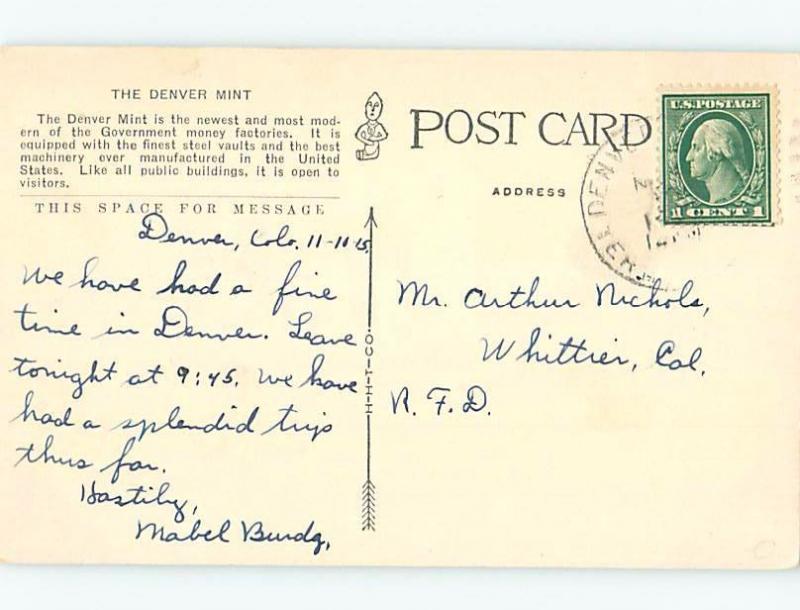 THE DENVER MINT
The Denver Mint is the newest and most mod-
ern of the Government money factories. It is
equipped with the finest steel vaults and the best
machinery ever manufactured in the United
States. Like all public buildings, it is open to
visitors.
THIS SPACE FOR MESSAGE
Denver, Colo. 11-11-15.
We have had a fine
time in Denver. Leave
tonight at 9:45. We have
had a splendid trip
thus far.
Hastily,
Mabel Burdg.
H-H-T-CO.
POST CARD
ADDRESS
DENVER
U.S. POSTAGE
1 CENT 1
Mr. Arthur Nichols,
Whittier, Cal.
R. F. D.